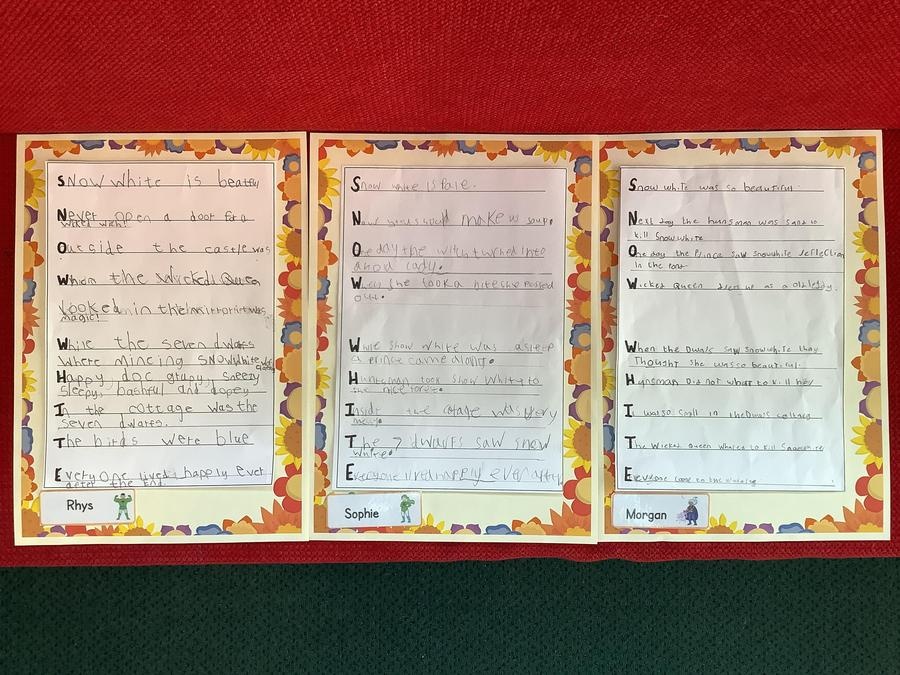 SNOW White is beatful
Never open a door for a
wiced wich!
Outside the castle was
When the Wicked Queen
looked in the mirror it was
magic!
While the seven dwarfs
Where mincing SNOW White
Happy doc grumy, sneezy
sleepy, bashful and dopey
In the cottage was the
seven dwarfs.
The birds were blue
Everyone lived happily ever
after the End
Rhys
Snow white is Pale.
make us soup.
One day the witch turned into
an old lady.
When she took a bite she passed
out.
While Snow White was asleep
a Prince came along.
Huntsman took Snow White to
the nice forest.
Inside the cotage was very
messy.
The 7 dwarfs saw Snow
White.
Everyone lived happily ever after
Sophie
Snow white was so beautiful
Next day the hunsman was sand to
kill Snow white
One day the Prince saw Snowwhite reflection
in the
Wicket Queen as a old
When the Dwafs saw Snowwhite they
Thought she was so beautiful.
Hunsman Did not what to kill hey
It was so Small in the Dwafs cottage
The Wicket Queen to kill
Everyone came to the
Morgan